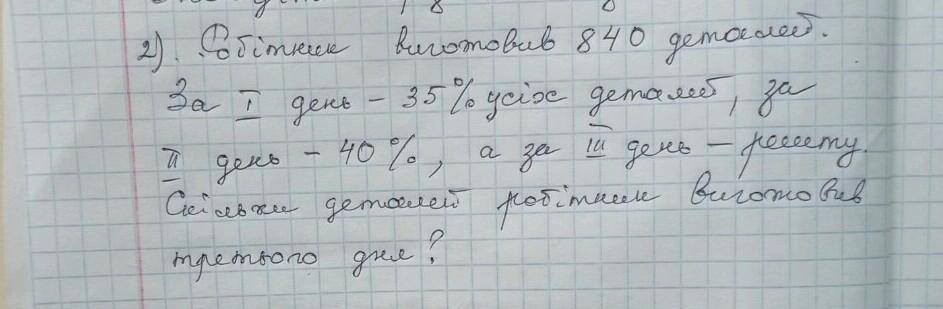 2). Робітник виготовив 840 деталей.
За I день - 35% усіх деталей, за
II день - 40%, а за III день - решту.
Скільки деталей робітник виготовив
третього дня?